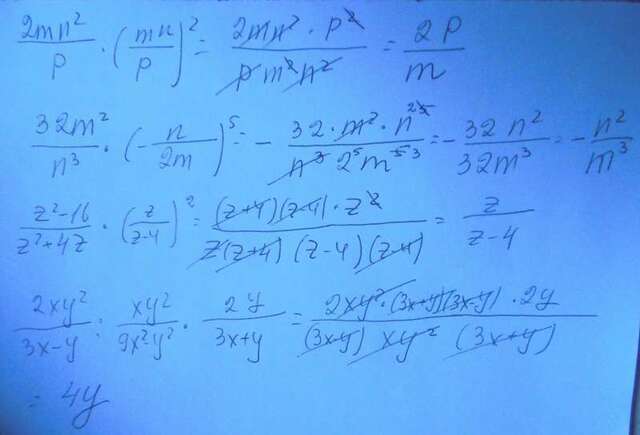 2mn²/p · (mn/p)² = 2mn² · p²/p m² n² = 2p/m
32m²/n³ · (-n/2m)⁵ = - 32 · m² · n⁵ ²/n³ 2⁵ m⁵ ³ = - 32 n²/32m³ = - n²/m³
z²-16/z²+4z · (z/z-4)² = (z+4)(z-4) · z²/z(z+4) (z-4)(z-4) = z/z-4
2xy²/3x-y : xy²/9x²y² · 2y/3x+y = 2xy² · (3x+y)(3x-y) · 2y/(3x-y) xy² (3x+y)
= 4y